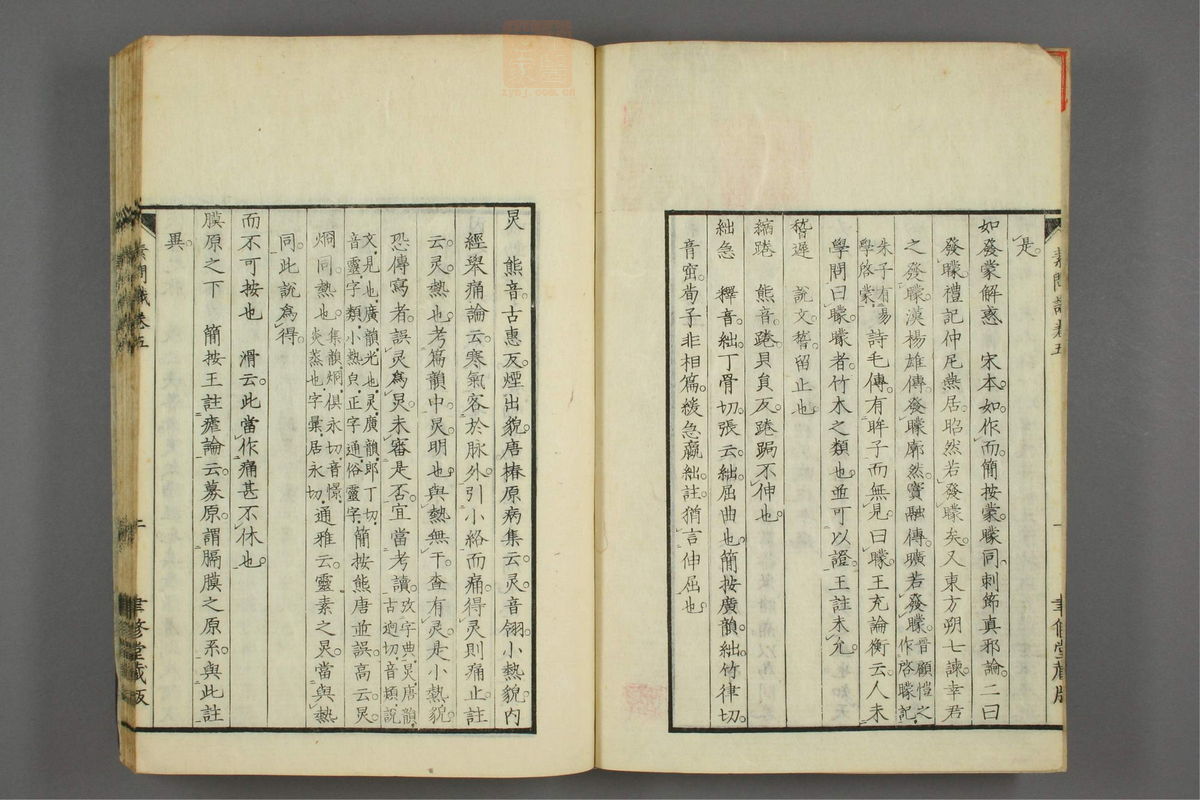 是
如發蒙解惑　宋本如作而簡按蒙矇同刺節真邪論二曰
發矇禮記仲尼燕居昭然若發矇矣又東方朔七諫幸君
之發矇漢楊雄傳發矇廓然竇融傳曠若發矇晉顧愷之作啓矇記
朱子有易學啓蒙詩毛傳有眸子而無見曰矇王充論衡云人未
學問曰矇矇者竹木之類也並可以證王註未允
稽遲　說文稽留止也
縮踡　熊音踡具負反踡跼不伸也
絀急　釋音絀丁骨切張云絀屈曲也簡按廣韻絀竹律切
音窋荀子非相篇緩急羸絀註猶言伸屈也
素問識卷五
聿修堂藏版
炅　熊音古惠反煙出貌唐椿原病集云灵音翎小熱貌内
經舉痛論云寒氣客於脉外引小絡而痛得灵則痛止註
云灵熱也考篇韻中炅明也與熱無干查有灵是小熱貌
恐傳寫者誤灵為炅未審是否宜當考讀攷字典炅唐韻古逈切音熲說
文見也廣韻光也灵廣韻郎丁切音靈字類小熱皃正字通俗靈字簡按熊唐並誤高云炅
烱同熱也集韻烱俱永切音憬炎蒸也字彙居永切通雅云靈素之炅當與熱
同此說為得
而不可按也　滑云此當作痛甚不休也
膜原之下　簡按王註瘧論云募原謂膈膜之原系與此註
異
素問識卷五
二
聿修堂藏版